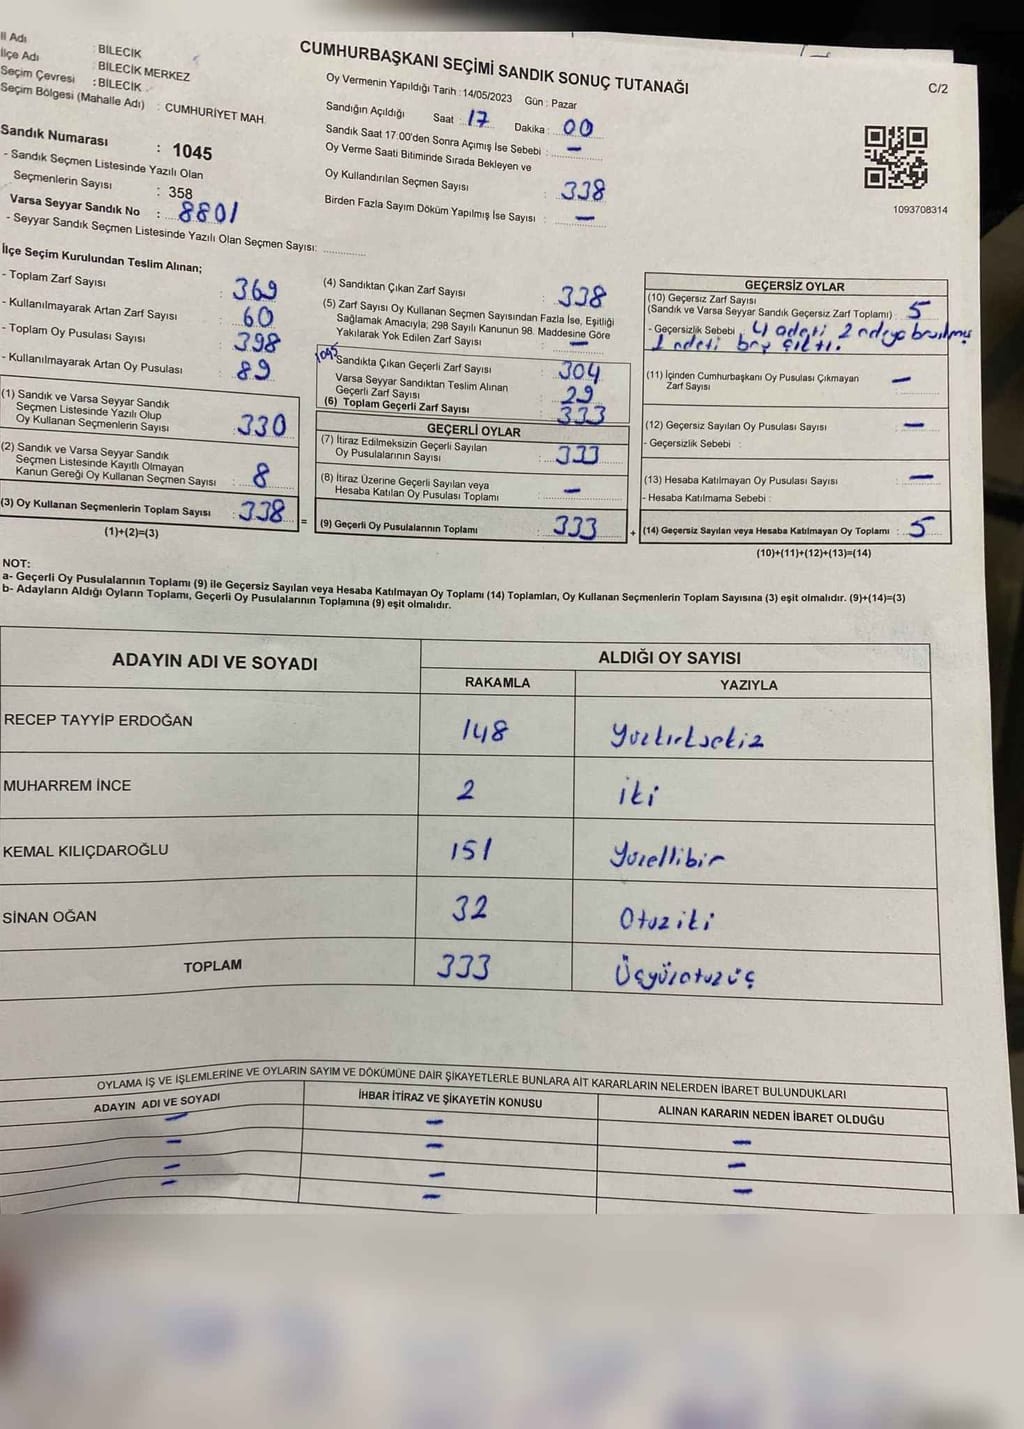 İl Adı : BİLECİK
İlçe Adı : BİLECİK MERKEZ
Seçim Çevresi : BİLECİK
Seçim Bölgesi (Mahalle Adı) : CUMHURİYET MAH.
Sandık Numarası : 1045
- Sandık Seçmen Listesinde Yazılı Olan
Seçmenlerin Sayısı : 358
Varsa Seyyar Sandık No : 8801
- Seyyar Sandık Seçmen Listesinde Yazılı Olan Seçmen Sayısı:
CUMHURBAŞKANI SEÇİMİ SANDIK SONUÇ TUTANAĞI
C/2
Oy Vermenin Yapıldığı Tarih : 14/05/2023 Gün : Pazar
Sandığın Açıldığı Saat : 17 Dakika : 00
Sandık Saat 17.00'den Sonra Açımış İse Sebebi : -
Oy Verme Saati Bitiminde Sırada Bekleyen ve
Oy Kullandırılan Seçmen Sayısı : 338
Birden Fazla Sayım Döküm Yapılmış İse Sayısı : -
1093708314
İlçe Seçim Kurulundan Teslim Alınan;
- Toplam Zarf Sayısı : 369
- Kullanılmayarak Artan Zarf Sayısı : 60
- Toplam Oy Pusulası Sayısı : 398
- Kullanılmayarak Artan Oy Pusulası : 89
(1) Sandık ve Varsa Seyyar Sandık
Seçmen Listesinde Yazılı Olup
Oy Kullanan Seçmenlerin Sayısı : 330
(2) Sandık ve Varsa Seyyar Sandık
Seçmen Listesinde Kayıtlı Olmayan
Kanun Gereği Oy Kullanan Seçmen Sayısı : 8
(3) Oy Kullanan Seçmenlerin Toplam Sayısı : 338
(1)+(2)=(3)
=
(4) Sandıktan Çıkan Zarf Sayısı : 338
(5) Zarf Sayısı Oy Kullanan Seçmen Sayısından Fazla İse, Eşitliği
Sağlamak Amacıyla; 298 Sayılı Kanunun 98. Maddesine Göre
Yakılarak Yok Edilen Zarf Sayısı : -
1045 Sandıkta Çıkan Geçerli Zarf Sayısı : 304
Varsa Seyyar Sandıktan Teslim Alınan
Geçerli Zarf Sayısı : 29
(6) Toplam Geçerli Zarf Sayısı : 333
GEÇERLİ OYLAR
(7) İtiraz Edilmeksizin Geçerli Sayılan
Oy Pusulalarının Sayısı : 333
(8) İtiraz Üzerine Geçerli Sayılan veya
Hesaba Katılan Oy Pusulası Toplamı : -
(9) Geçerli Oy Pusulalarının Toplamı : 333
+
GEÇERSİZ OYLAR
(10) Geçersiz Zarf Sayısı
(Sandık ve Varsa Seyyar Sandık Geçersiz Zarf Toplamı) : 5
- Geçersizlik Sebebi : 4 adeti 2 adaya basılmış
1 adeti boş çıktı.
(11) İçinden Cumhurbaşkanı Oy Pusulası Çıkmayan
Zarf Sayısı : -
(12) Geçersiz Sayılan Oy Pusulası Sayısı : -
- Geçersizlik Sebebi :
(13) Hesaba Katılmayan Oy Pusulası Sayısı : -
- Hesaba Katılmama Sebebi :
(14) Geçersiz Sayılan veya Hesaba Katılmayan Oy Toplamı : 5
(10)+(11)+(12)+(13)=(14)
NOT:
a- Geçerli Oy Pusulalarının Toplamı (9) ile Geçersiz Sayılan veya Hesaba Katılmayan Oy Toplamı (14) Toplamları, Oy Kullanan Seçmenlerin Toplam Sayısına (3) eşit olmalıdır. (9)+(14)=(3)
b- Adayların Aldığı Oyların Toplamı, Geçerli Oy Pusulalarının Toplamına (9) eşit olmalıdır.
ADAYIN ADI VE SOYADI ALDIĞI OY SAYISI
RAKAMLA YAZIYLA
RECEP TAYYİP ERDOĞAN 148 Yüzkırksekiz
MUHARREM İNCE 2 iki
KEMAL KILIÇDAROĞLU 151 Yüzellibir
SİNAN OĞAN 32 Otuziki
TOPLAM 333 Üçyüzotuzüç
OYLAMA İŞ VE İŞLEMLERİNE VE OYLARIN SAYIM VE DÖKÜMÜNE DAİR ŞİKAYETLERLE BUNLARA AİT KARARLARIN NELERDEN İBARET BULUNDUKLARI
ADAYIN ADI VE SOYADI İHBAR İTİRAZ VE ŞİKAYETİN KONUSU ALINAN KARARIN NEDEN İBARET OLDUĞU
- - -
- - -
- - -
- -